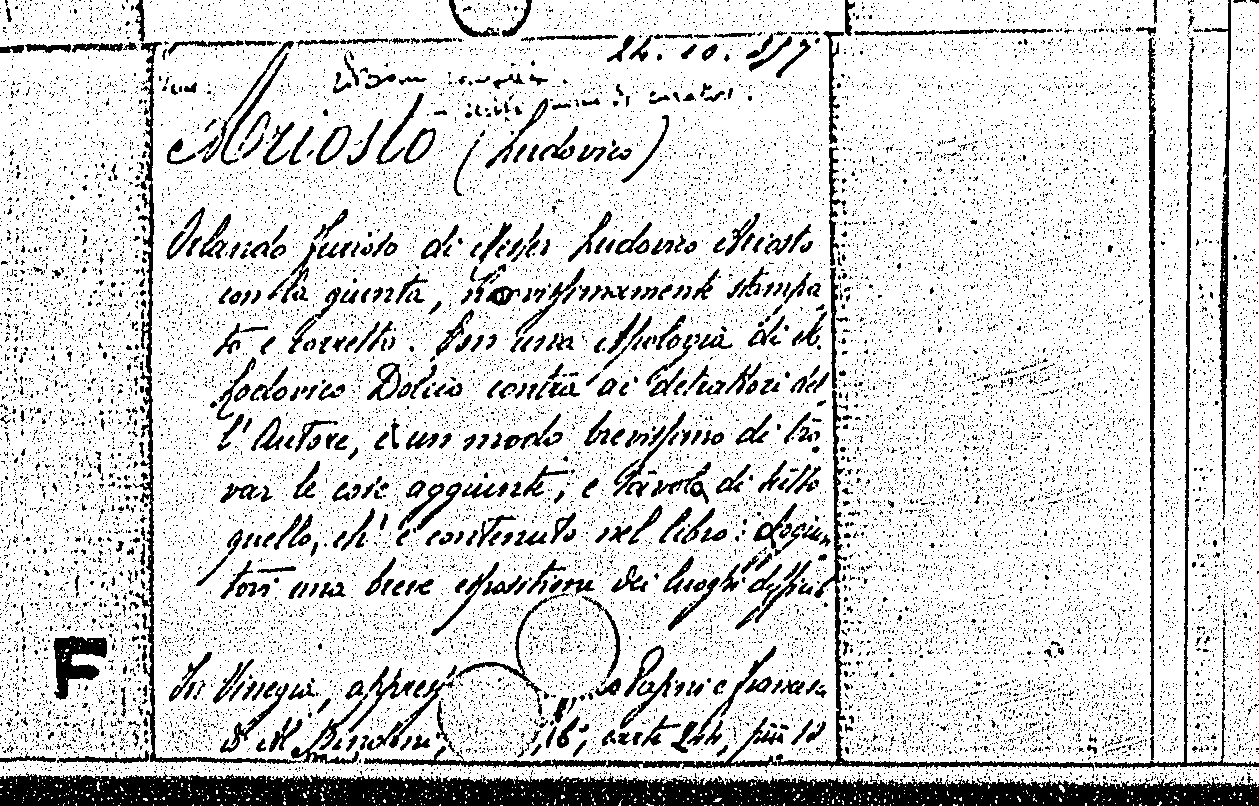 24. 10.
Ariosto (Ludovico)
Orlando furioso di Messer Ludovico Ariosto
con la giunta, Novissimamente stampa
to e corretto. Con una Apologia di M.
Lodovico Dolcio contra ai detrattori del
l'Autore, et un modo brevissimo di tro
var le cose aggiunte, e Tavola di tutto
quello, ch'è contenuto nel libro: Aggiun
tovi una breve espositione dei luoghi difficil
F
In Vinegia, appress Pasini e Francesco
di M. Bindoni, 16°, carte 244, più 18